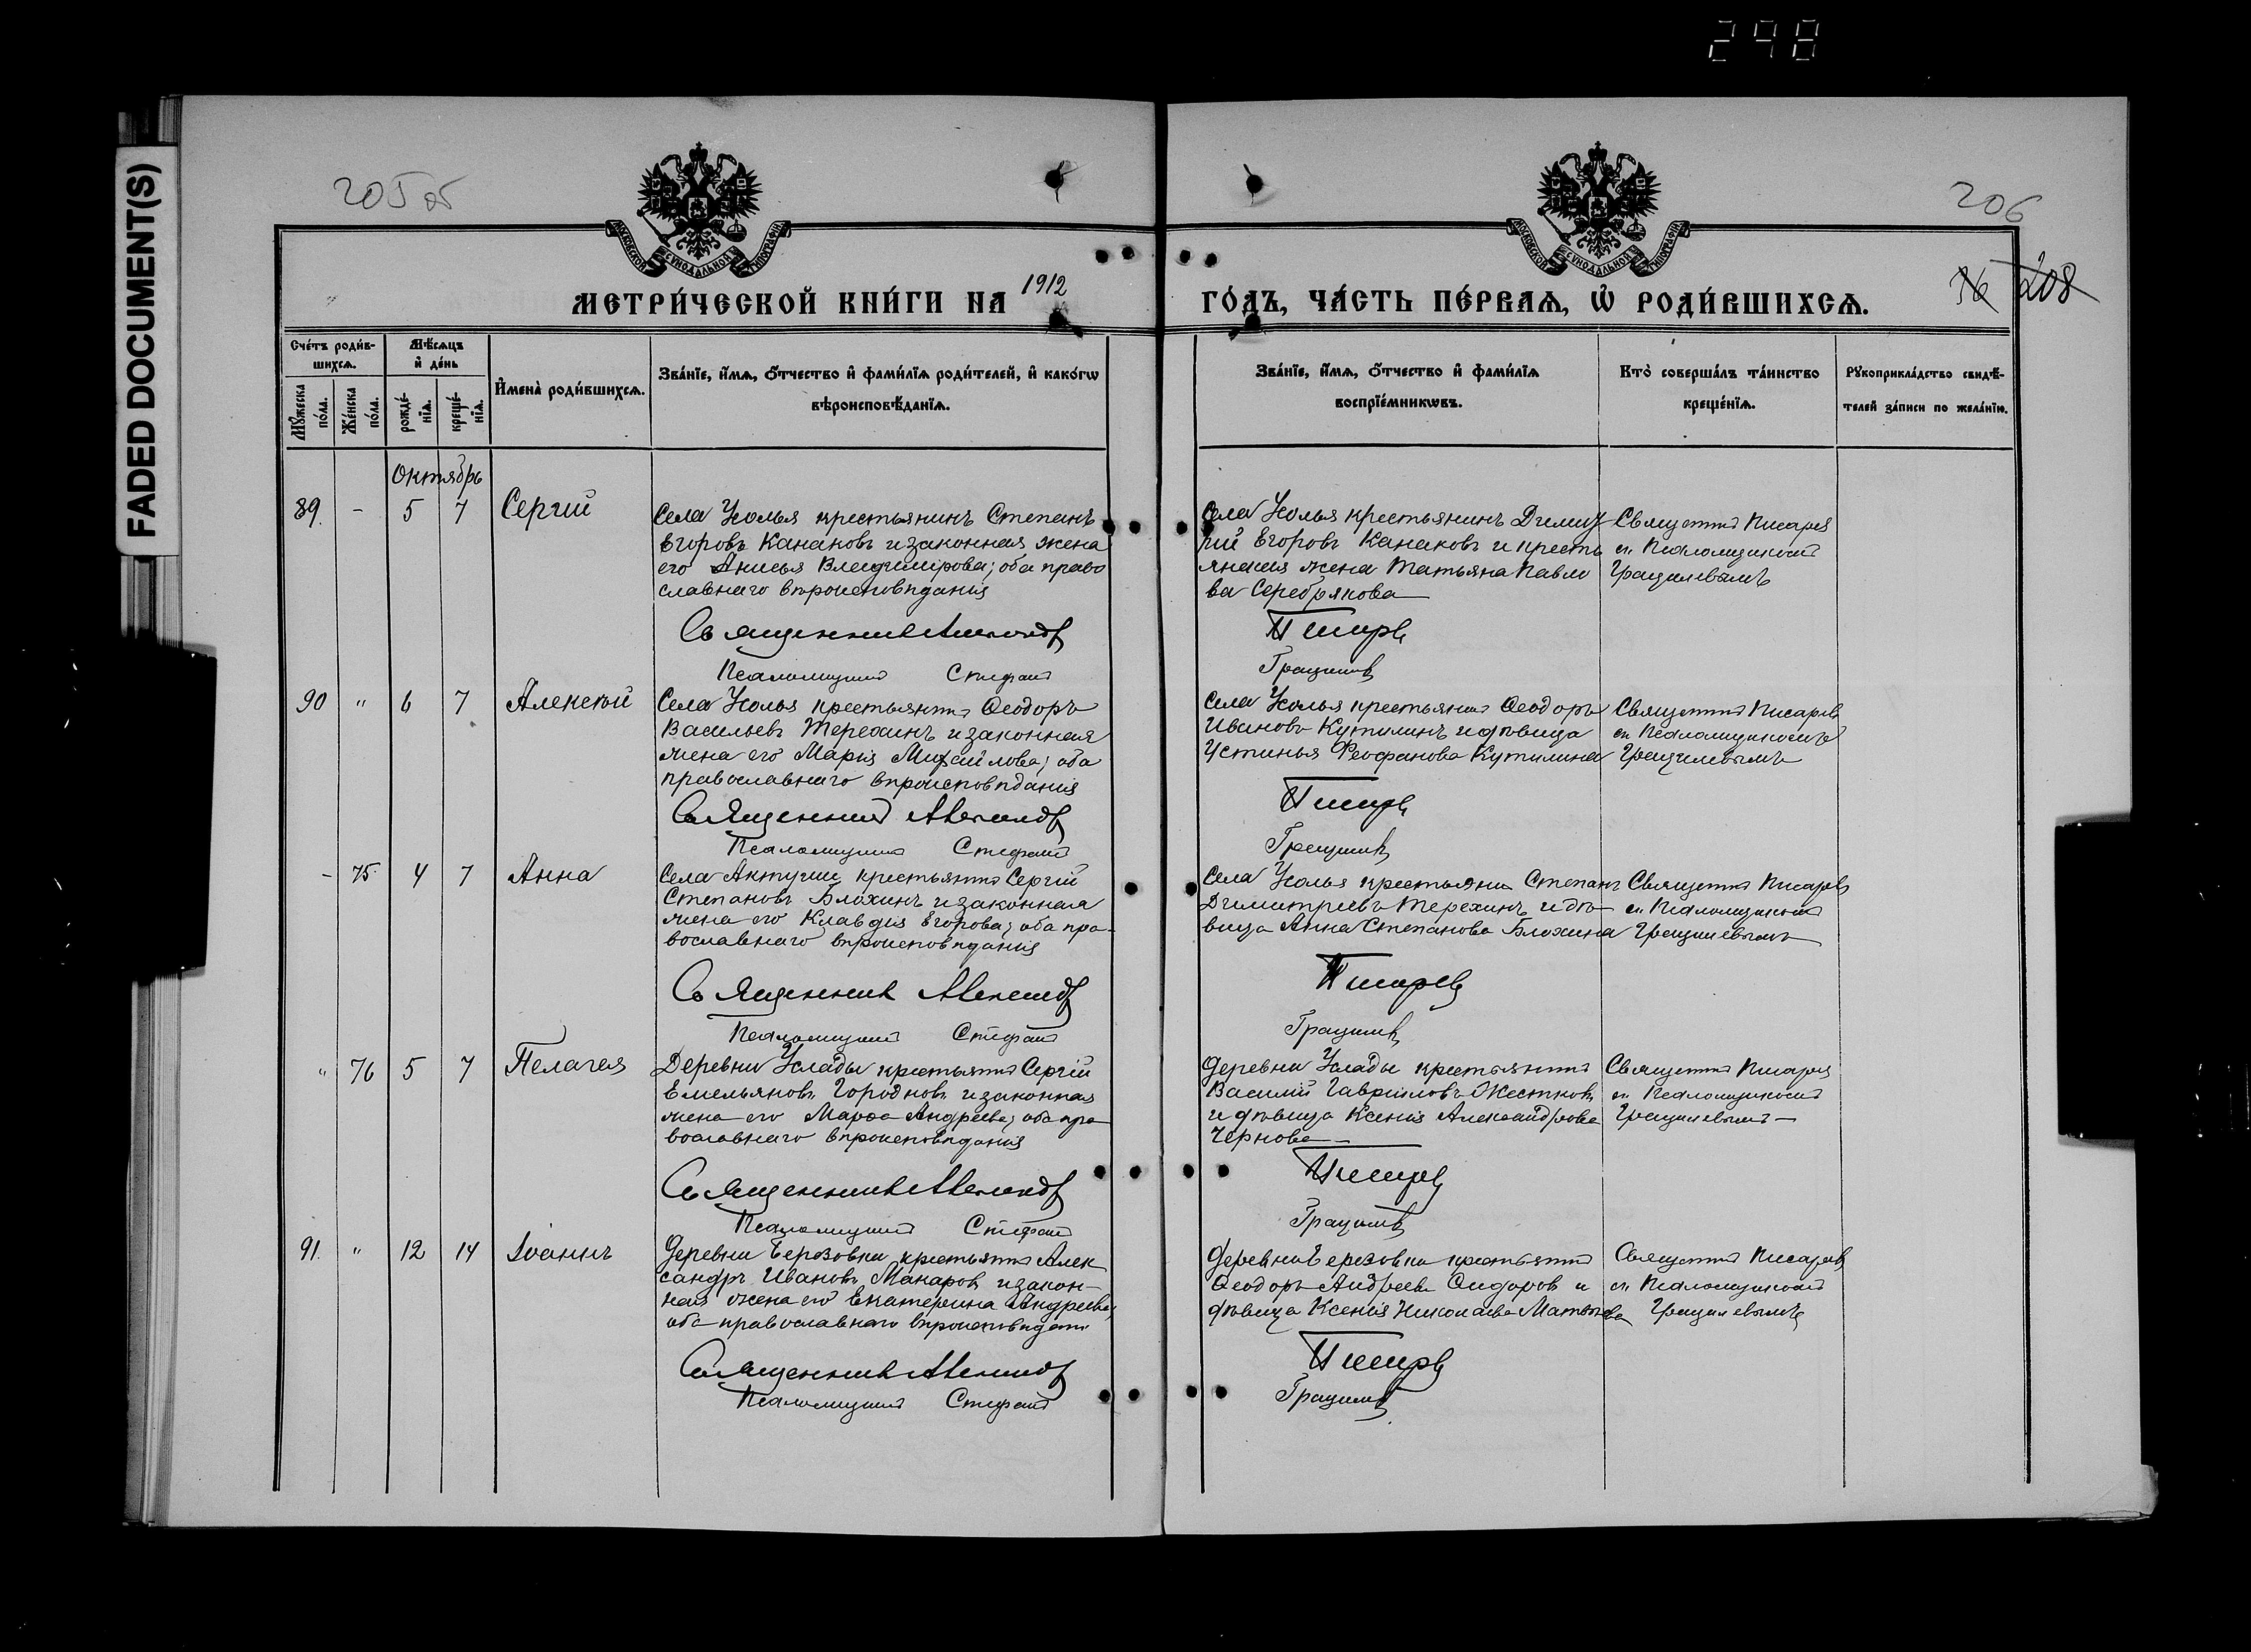 298
FADED DOCUMENT(S)
205 об
206
36 208
МОСКОВСКОЙ СѴНОДАЛЬНОЙ ТИПОГРАФІИ
МОСКОВСКОЙ СѴНОДАЛЬНОЙ ТИПОГРАФІИ
МЕТРИ́ЧЕСКОЙ КНИ́ГИ НА 1912
ГО́ДЪ, ЧА́СТЬ ПЕ́РВАѦ, Ѡ҆ РОДИ́ВШИХСѦ.
Сче́тъ роди́в-
шихсѧ.
Мꙋ́жеска по́ла.
Же́нска по́ла.
Мѣ́сѧцъ и҆ де́нь
рожде́-нїѧ.
креще́-нїѧ.
И҆мена̀ роди́вшихсѧ.
Зва́нїе, и҆́мѧ, ѻ҆́тчество и҆ фами́лїѧ роди́телей, и҆ како́гѡ
вѣроисповѣ́данїѧ.
Зва́нїе, и҆́мѧ, ѻ҆́тчество и҆ фами́лїѧ
воспрїе́мникѡвъ.
Кто̀ соверша́лъ та́инство
креще́нїѧ.
Рꙋкоприкла́дство свидѣ́-
телей за́писи по жела́нїю.
Октябрь
89. - 5 7 Сергій
Села Усолья крестьянинъ Степанъ
Егоровъ Канаковъ и законная жена
его Анисья Владимірова; оба право
славнаго вѣроисповѣданія
Священникъ Александръ
Псаломщикъ Стефанъ
Села Усолья крестьянинъ Димит
рій Егоровъ Канаковъ и кресть
янская жена Татьяна Павло
ва Серебрякова
Писаревъ
Грацилевъ
Священникъ Писаревъ
съ Псаломщикомъ
Грацилевымъ
90 " 6 7 Алексѣй
Села Усолья крестьянинъ Ѳеодоръ
Васильевъ Терехинъ и законная
жена его Марія Михайлова; оба
православнаго вѣроисповѣданія
Священникъ Александръ
Псаломщикъ Стефанъ
Села Усолья крестьянинъ Ѳеодоръ
Ивановъ Кутилинъ и дѣвица
Устинья Феофанова Кутилина
Писаревъ
Грацилевъ
Священникъ Писаревъ
съ Псаломщикомъ
Грацилевымъ
- 75. 4 7 Анна
Села Актуши крестьянинъ Сергій
Степановъ Блохинъ и законная
жена его Клавдія Егорова; оба пра-
вославнаго вѣроисповѣданія
Священникъ Александръ
Псаломщикъ Стефанъ
Села Усолья крестьянинъ Степанъ
Димитріевъ Терехинъ и дѣ-
вица Анна Степанова Блохина
Писаревъ
Грацилевъ
Священникъ Писаревъ
съ Псаломщикомъ
Грацилевымъ
" 76 5 7 Пелагея
Деревни Услады крестьянинъ Сергій
Емельяновъ Городновъ и законная
жена его Марѳа Андреева; оба пра
вославнаго вѣроисповѣданія
Священникъ Александръ
Псаломщикъ Стефанъ
Деревни Услады крестьянинъ
Василій Гавриловъ Жестковъ
и дѣвица Ксенія Александрова
Чернова
Писаревъ
Грацилевъ
Священникъ Писаревъ
съ Псаломщикомъ
Грацилевымъ
91. " 12 14 Іоаннъ
Деревни Березовки крестьянинъ Алек
сандръ Ивановъ Макаровъ и закон-
ная жена его Екатерина Андреева;
оба православнаго вѣроисповѣдан
Священникъ Александръ
Псаломщикъ Стефанъ
Деревни Березовки крестьянинъ
Ѳеодоръ Андреевъ Сидоровъ и
дѣвица Ксенія Николаева Матвѣева
Писаревъ
Грацилевъ
Священникъ Писаревъ
съ Псаломщикомъ
Грацилевымъ